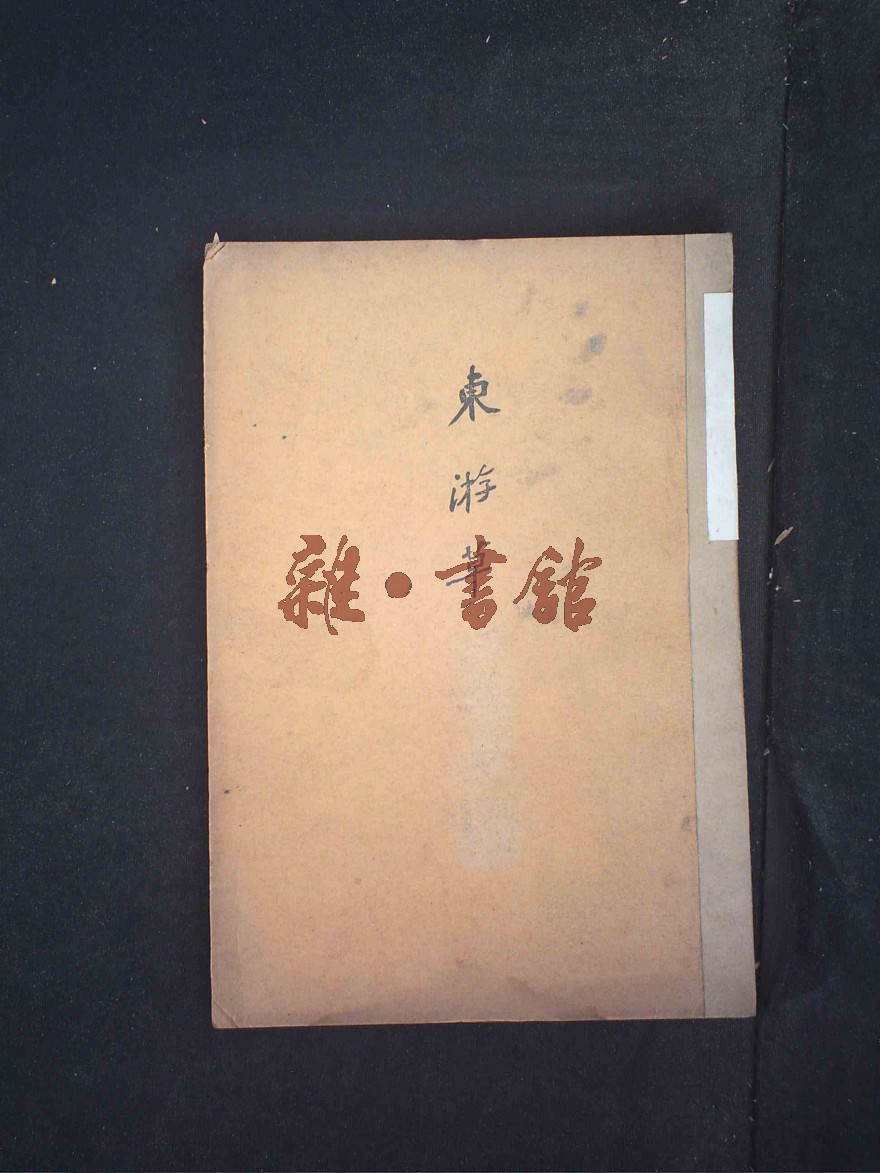 東游草
雜•書館